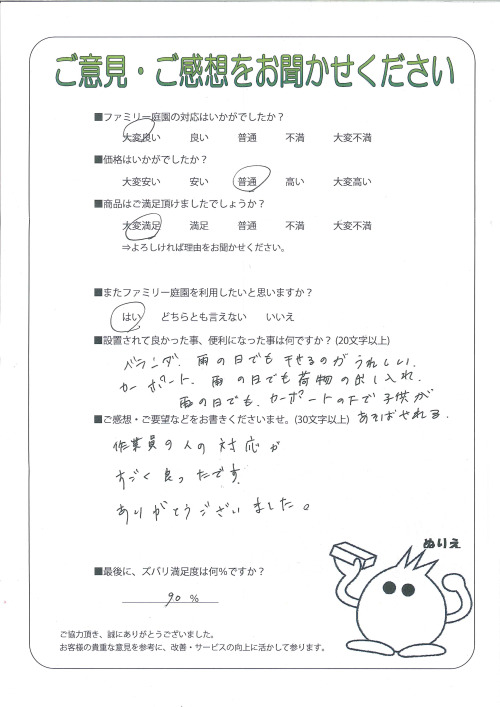 ご意見・ご感想をお聞かせください
■ファミリー庭園の対応はいかがでしたか？
大変良い 良い 普通 不満 大変不満
■価格はいかがでしたか？
大変安い 安い 普通 高い 大変高い
■商品はご満足頂けましたでしょうか？
大変満足 満足 普通 不満 大変不満
⇒よろしければ理由をお聞かせください。
■またファミリー庭園を利用したいと思いますか？
はい どちらとも言えない いいえ
■設置されて良かった事、便利になった事は何ですか？(20文字以上)
ベランダ、雨の日でも干せるのがうれしい。
カーポート、雨の日でも荷物の出し入れ、
雨の日でも、カーポートの下で子供が
あそばせれる。
■ご感想・ご要望などをお書きくださいませ。(30文字以上)
作業員の人の対応が
すごく良ったです
ありがとうございました。
■最後に、ズバリ満足度は何％ですか？
90 %
ぬりえ
ご協力頂き、誠にありがとうございました。
お客様の貴重な意見を参考に、改善・サービスの向上に活かして参ります。